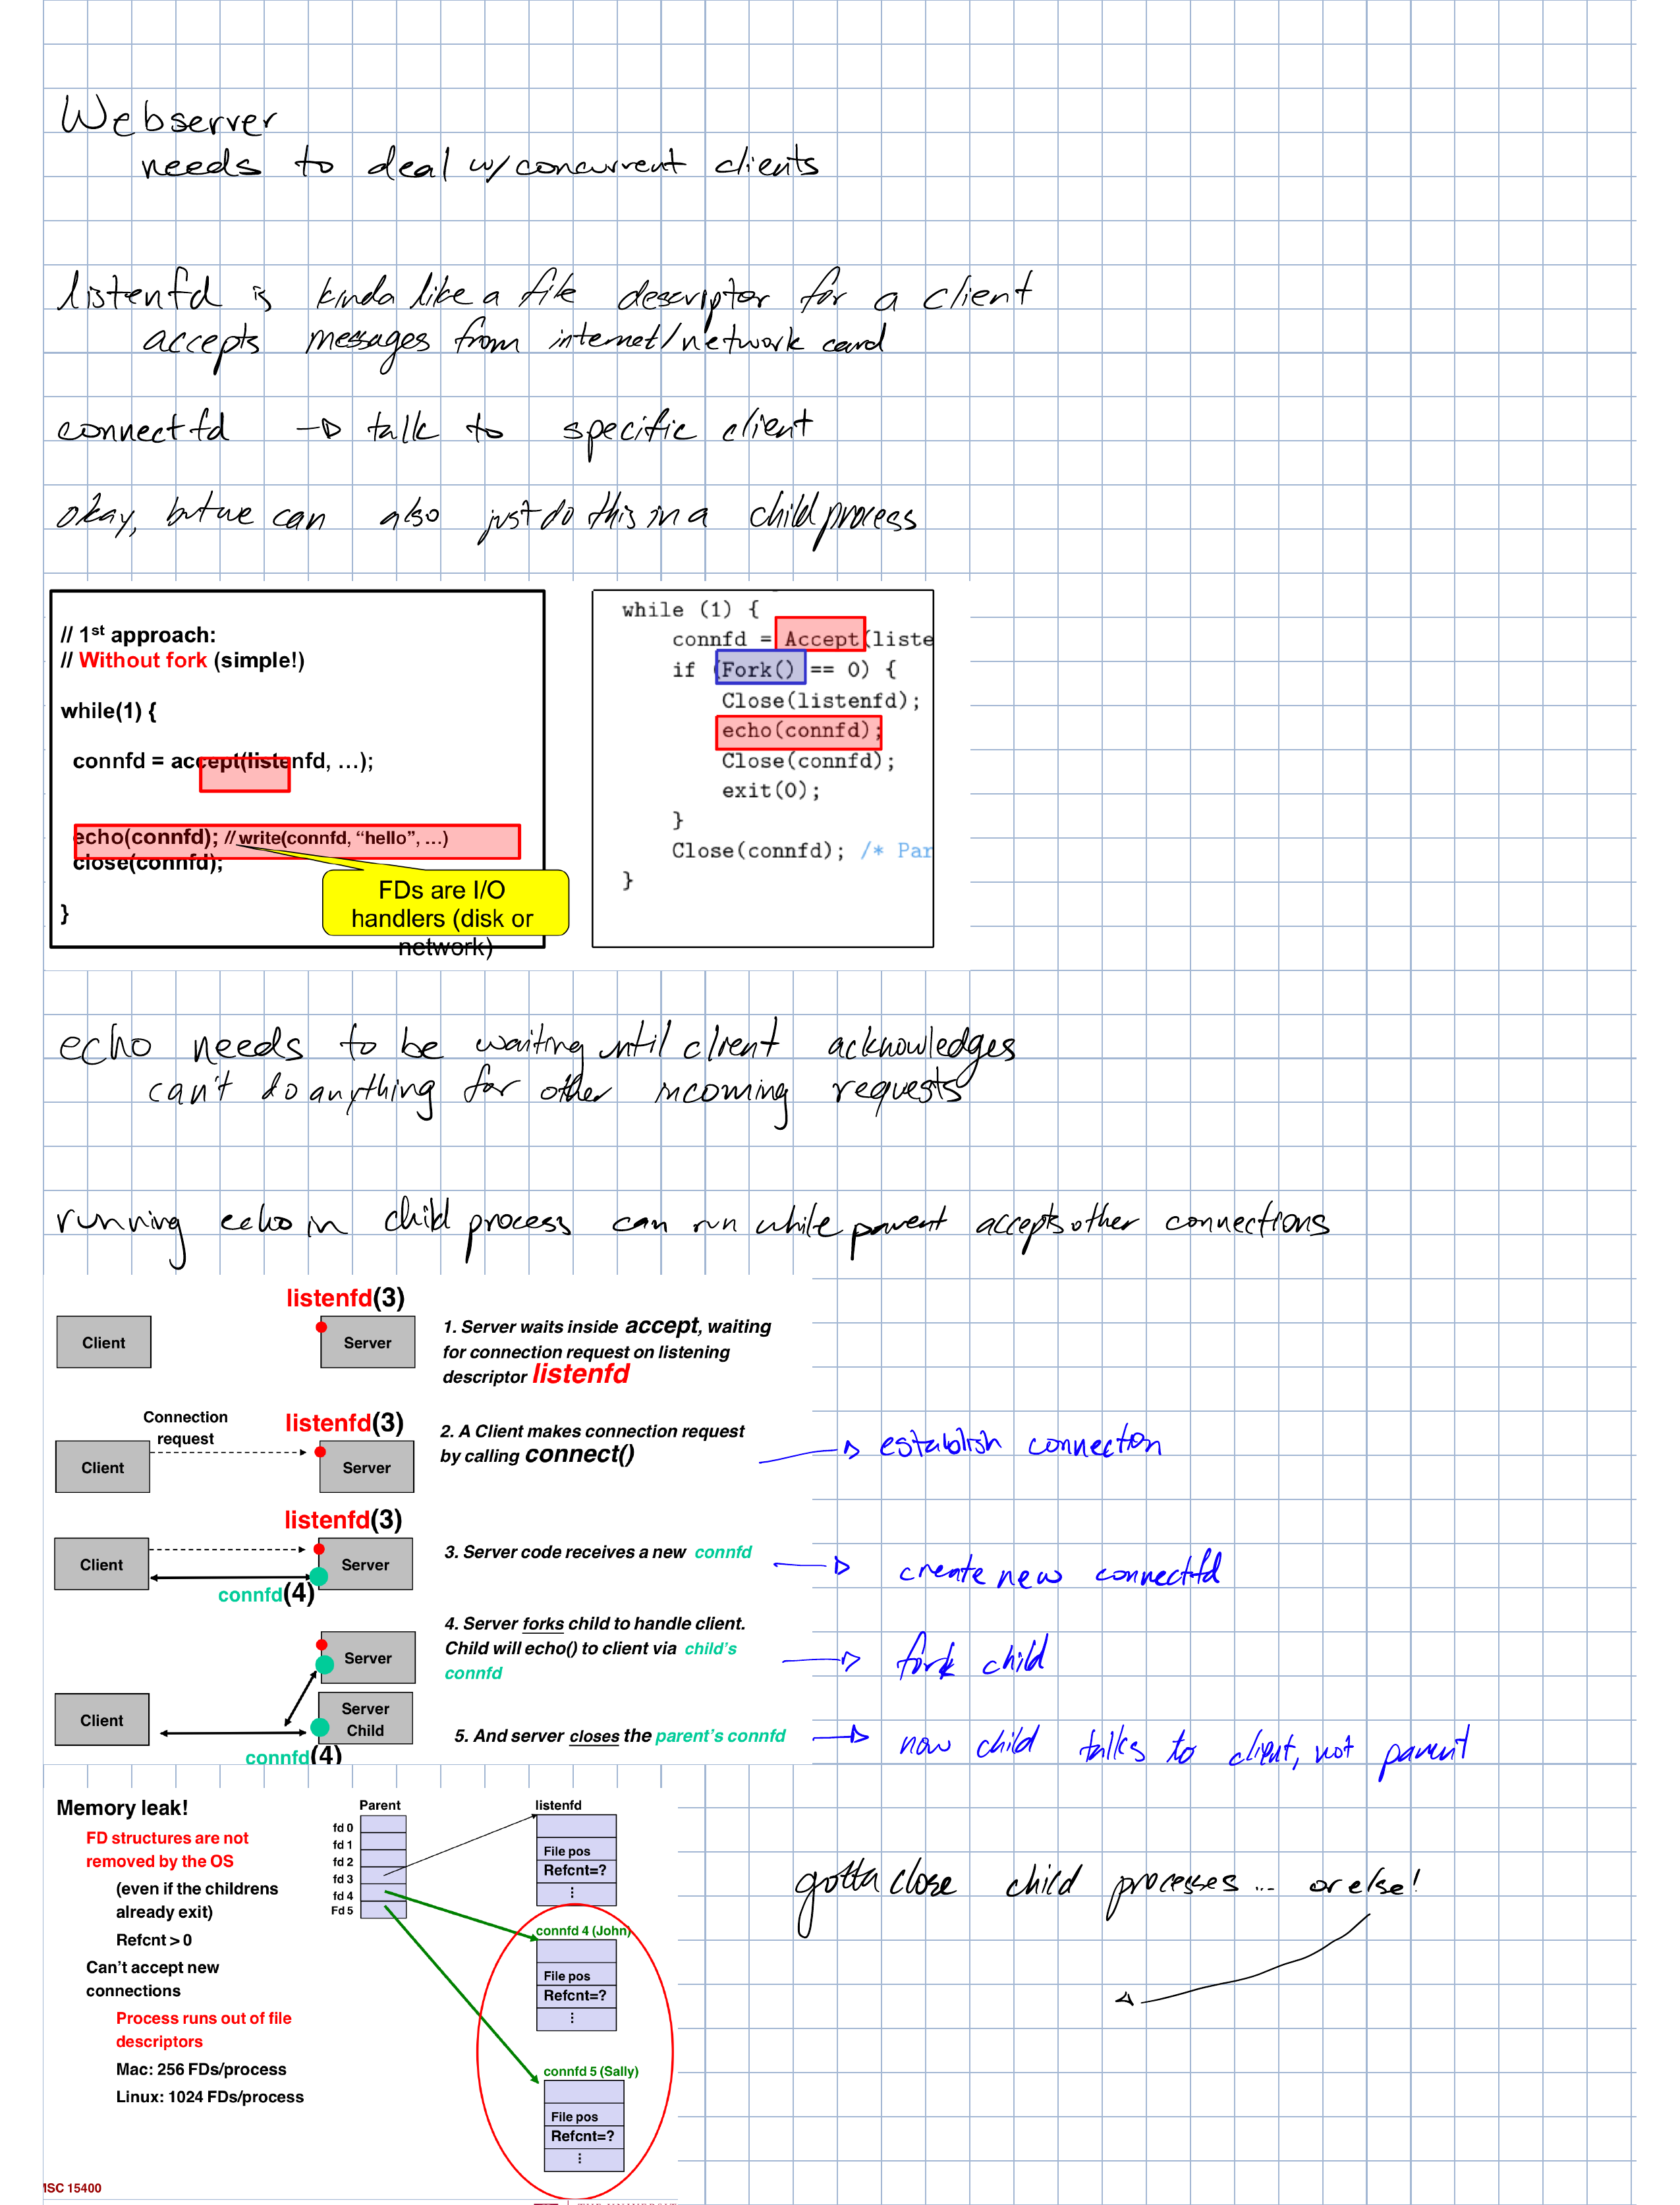 Webserver
needs to deal w/ concurrent clients
listenfd is kinda like a file descriptor for a client
accepts messages from internet/network card
connectfd → talk to specific client
okay, but we can also just do this in a child process
// 1st approach:
// Without fork (simple!)
while(1) {
connfd = accept(listenfd, …);
echo(connfd); // write(connfd, “hello”, …)
close(connfd);
}
FDs are I/O
handlers (disk or
network)
while (1) {
connfd = Accept(liste
if (Fork() == 0) {
Close(listenfd);
echo(connfd);
Close(connfd);
exit(0);
}
Close(connfd); /* Par
}
echo needs to be waiting until client acknowledges
can't do anything for other incoming requests
running echo in child process can run while parent accepts other connections
listenfd(3)
Client
Server
1. Server waits inside accept, waiting
for connection request on listening
descriptor listenfd
Connection
request
listenfd(3)
Client
Server
2. A Client makes connection request
by calling connect()
→ establish connection
listenfd(3)
Client
Server
connfd(4)
3. Server code receives a new connfd
→ create new connectfd
4. Server forks child to handle client.
Child will echo() to client via child's
connfd
→ fork child
Server
Client
Server
Child
connfd(4)
5. And server closes the parent's connfd
→ now child talks to client, not parent
Memory leak!
FD structures are not
removed by the OS
(even if the childrens
already exit)
Refcnt > 0
Can't accept new
connections
Process runs out of file
descriptors
Mac: 256 FDs/process
Linux: 1024 FDs/process
Parent
fd 0
fd 1
fd 2
fd 3
fd 4
Fd 5
listenfd
File pos
Refcnt=?
⋮
connfd 4 (John)
File pos
Refcnt=?
⋮
connfd 5 (Sally)
File pos
Refcnt=?
⋮
gotta close child processes... or else!
ISC 15400